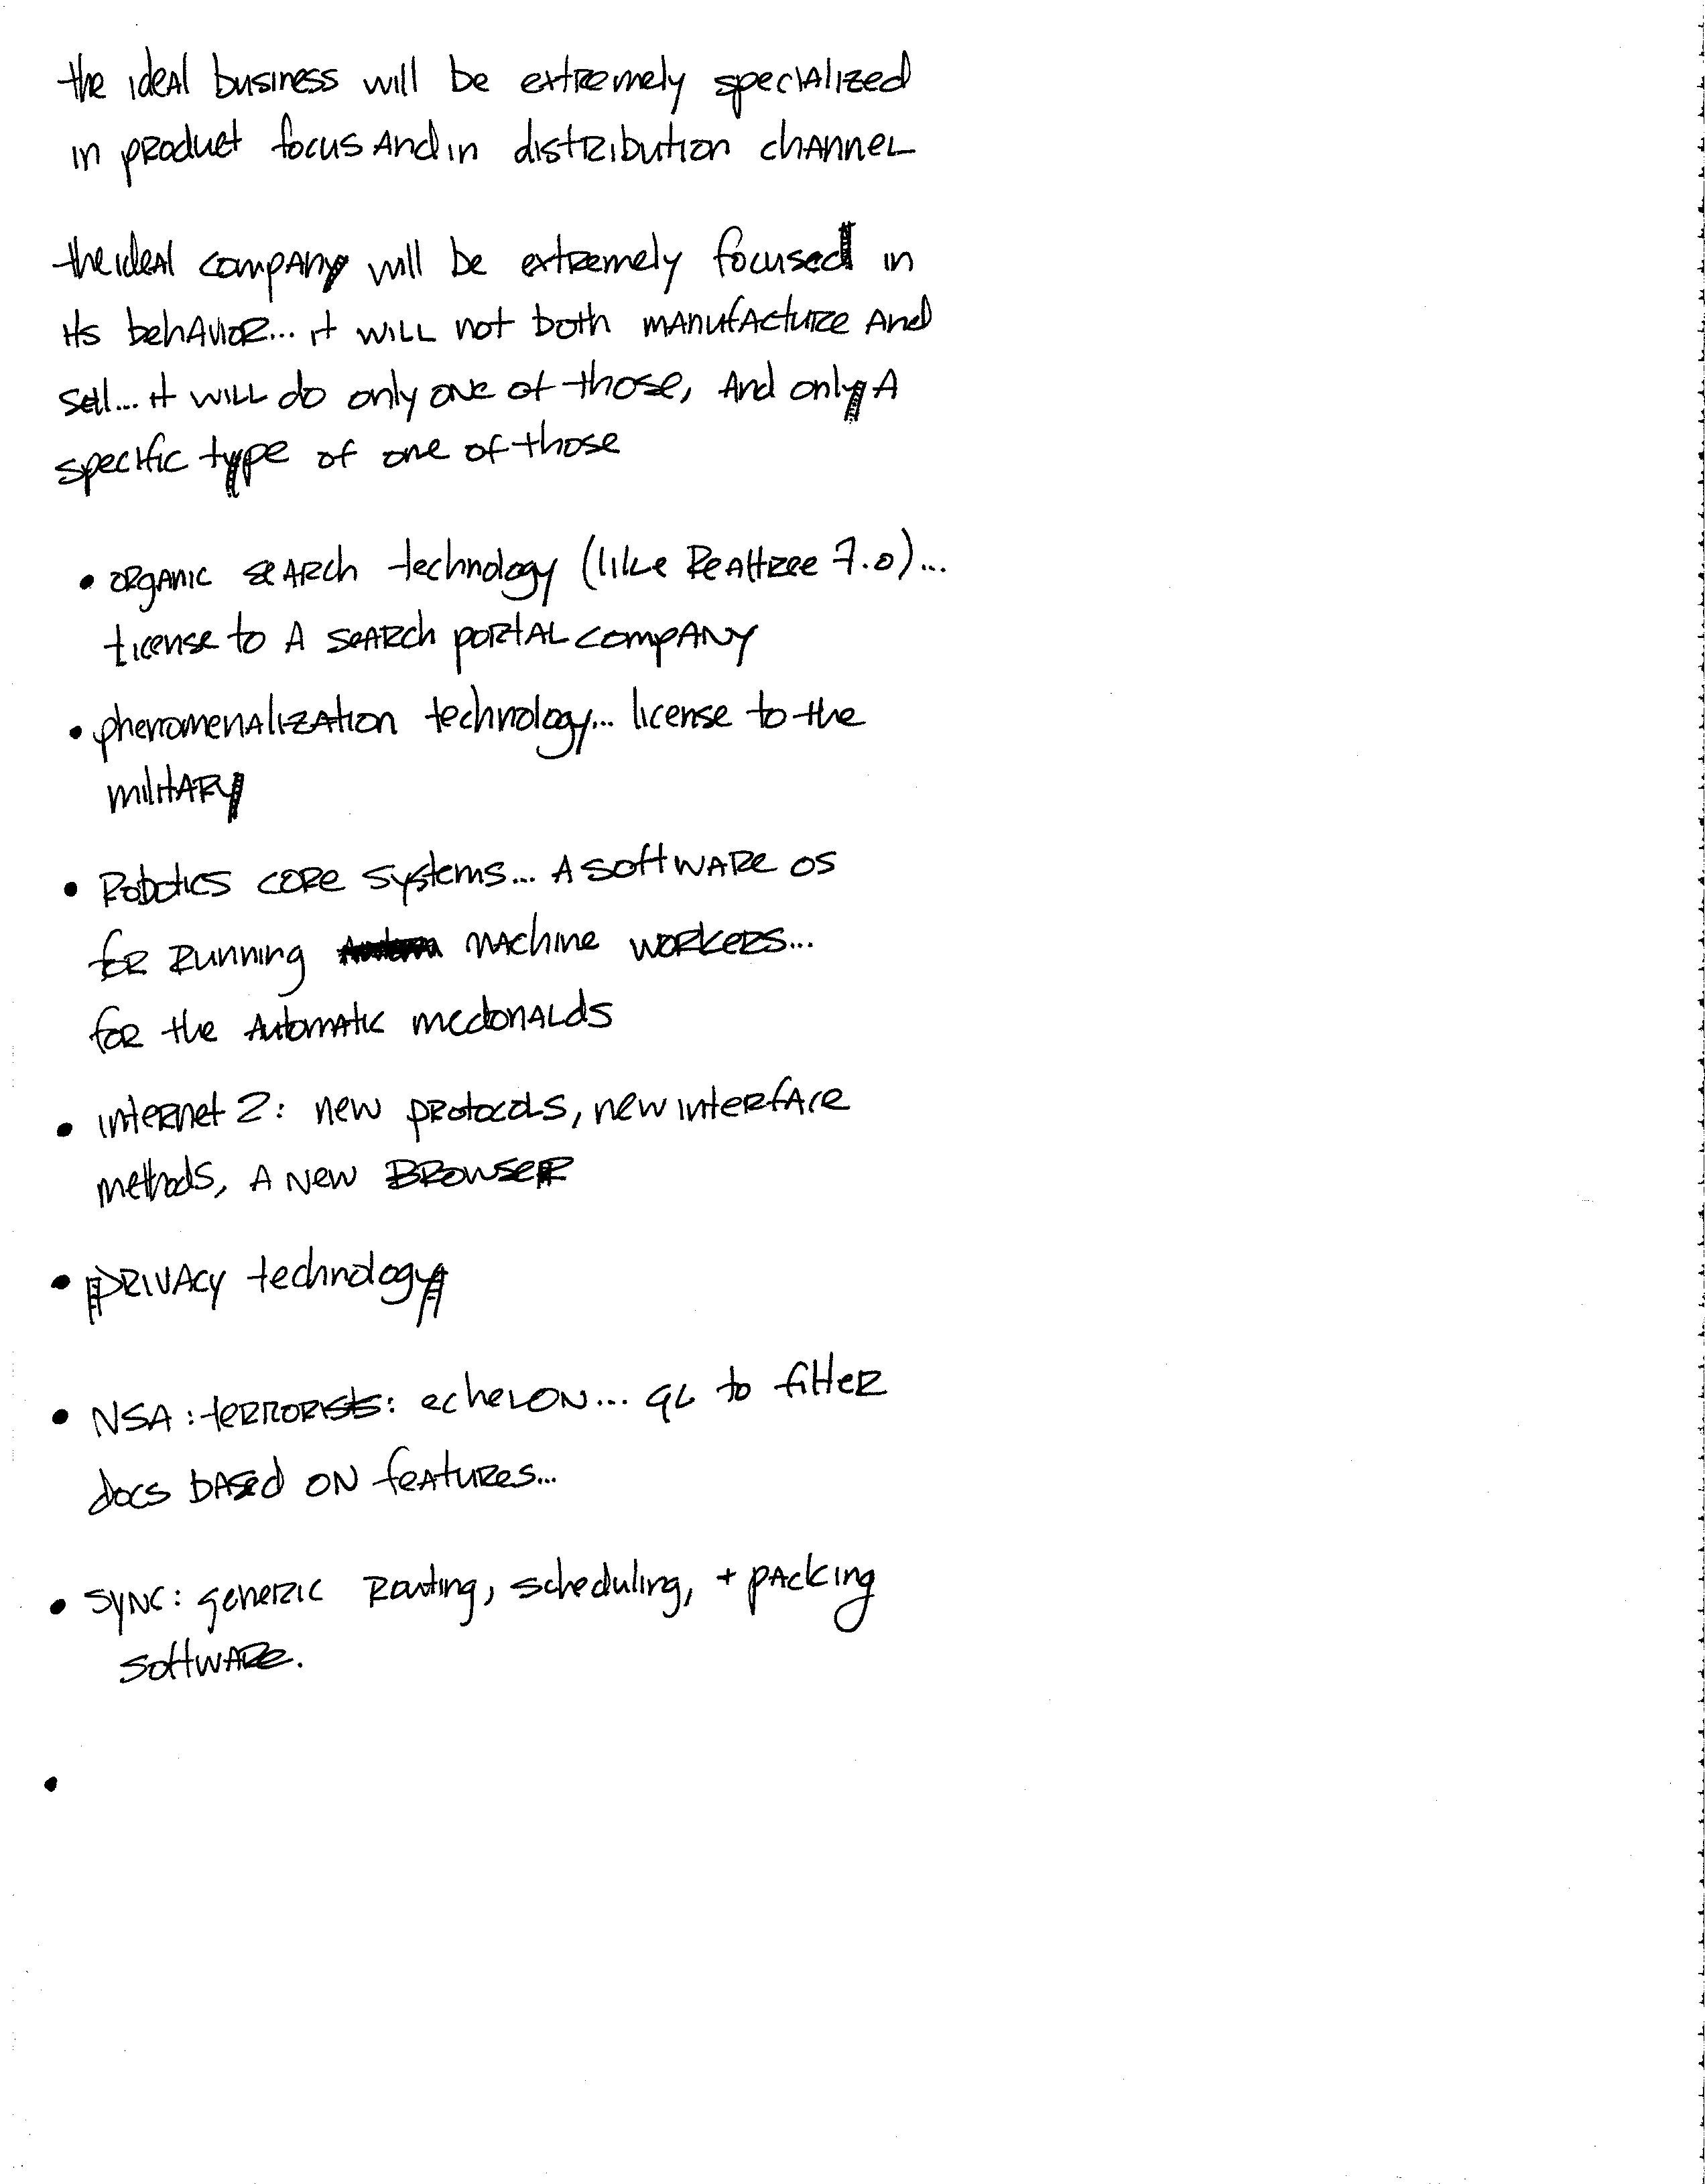 the ideal business will be extremely specialized
in product focus and in distribution channel
the ideal company will be extremely focused in
its behavior... it will not both manufacture and
sell... it will do only one of those, and only a
specific type of one of those
• organic search technology (like Realtree 7.0)...
license to a search portal company
• phenomenalization technology... license to the
military
• Robotics core systems... A software os
for running machine workers...
for the automatic mcdonalds
• internet 2: new protocols, new interface
methods, a new Browser
• privacy technology
• NSA: terrorists: echelon... to filter
docs based on features...
• sync: generic routing, scheduling, + packing
software.
•